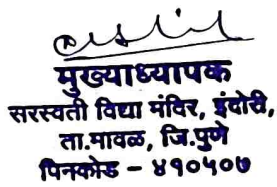 मुख्याध्यापक
सरस्वती विद्या मंदिर, इंदोरी,
ता.मावळ, जि.पुणे
पिनकोड – ४१०५०७